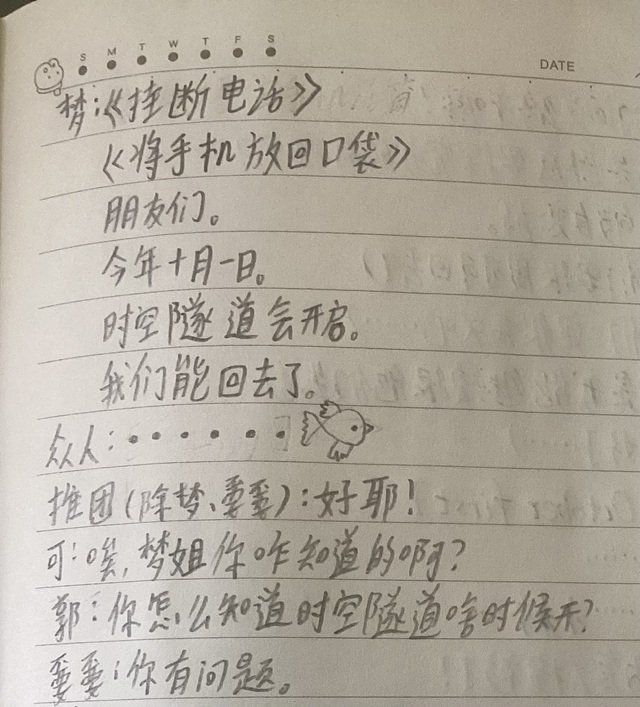 S M T W T F S
DATE
梦:《挂断电话》
《将手机放回口袋》
朋友们。
今年十月一日。
时空隧道会开启。
我们能回去了。
众人:······
推团(除梦、嫑嫑):好耶!
可:唉,梦姐你咋知道的啊?
郭:你怎么知道时空隧道啥时候开?
嫑嫑:你有问题。